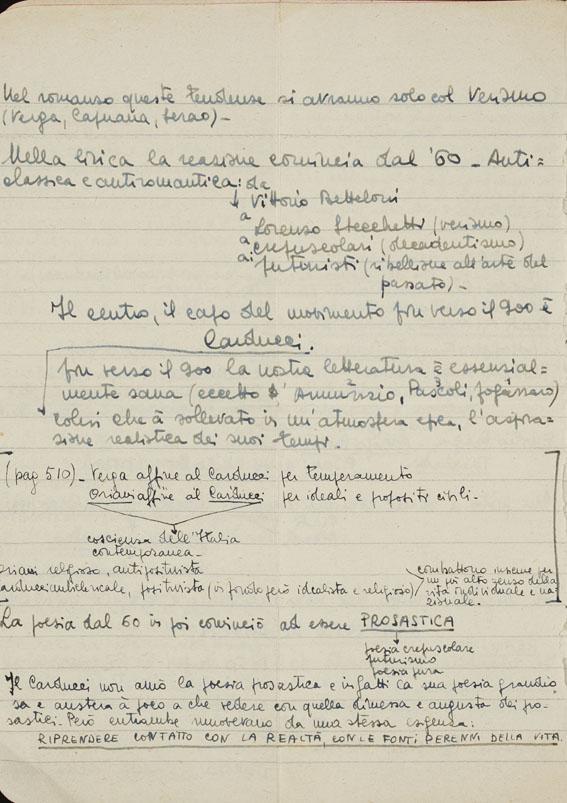 Nel romanzo queste tendenze si avranno solo col Verismo
(Verga, Capuana, Serao)-
Nella lirica la reazione comincia dal '60 - Anti=
classica e antiromantica: da
Vittorio Betteloni
a Lorenzo Stecchetti (verismo)
a' crepuscolari (decadentismo)
ai futuristi (ribellione all'arte del
passato)-
Il centro, il capo del movimento fin verso il 900 è
Carducci.
fin verso il 900 la nostra letteratura è essenzial=
mente sana (eccetto D'Annunzio, Pascoli, Fogazzaro)
colui che à sollevato in un'atmosfera epica, l'aspira=
zione realistica dei suoi tempi.
(pag 510)- Verga affine al Carducci per temperamento
Oriani affine al Carducci per ideali e propositi civili-
coscienza dell'Italia
contemporanea-
Oriani religioso, antipositivista
Carducci anticlericale, positivista (in fondo però idealista e religioso)
combattono insieme per
un più alto senso della
vita individuale e na=
zionale.
La poesia dal 60 in poi cominciò ad essere PROSASTICA
poesia crepuscolare
futurismo
poesia pura
Il Carducci non amò la poesia prosastica e infatti la sua poesia grandio
sa e austera à poco a che vedere con quella dimessa e angusta dei pro-
sastici. Però entrambe muovevano da una stessa esigenza:
RIPRENDERE CONTATTO CON LA REALTÀ, CON LE FONTI PERENNI DELLA VITA.